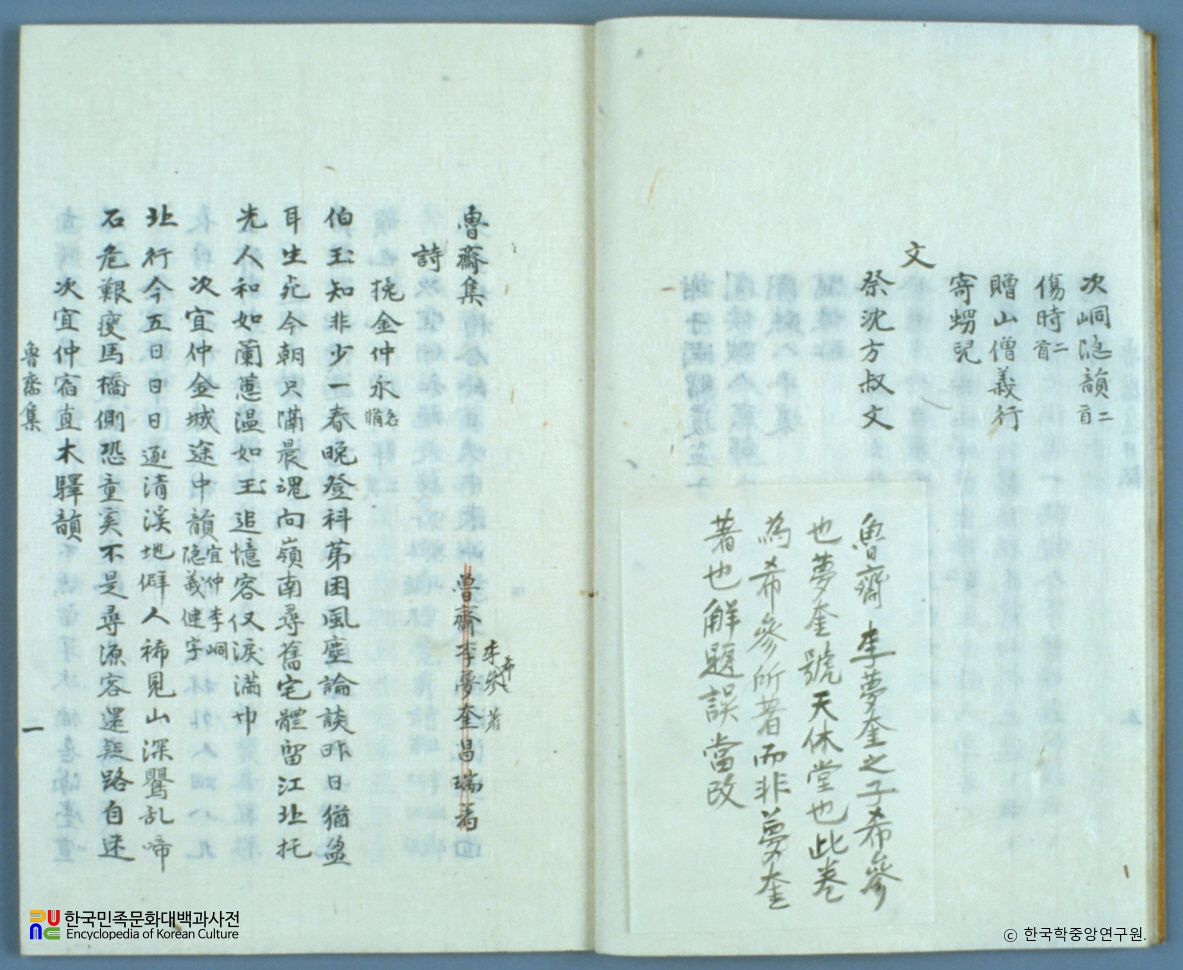 次峒隐韻二首
傷時二首
贈山僧義行
寄甥兒
文
祭沈方叔文
魯齋 李夢奎之子希參
也夢奎號天休堂也此卷
為希參所著而非夢奎
著也解題誤當改
魯齋集
魯齋李夢奎昌瑞著
李希參著
詩
挽金仲永名脩
伯玉知非少一春晚登科第困風塵論談昨日猶盆
耳生死今朝只隔晨魂向嶺南尋舊宅體留江北托
光人和如蘭蕙温如玉追憶容仪淚滿巾
次宜仲金城途中韻宜仲李峒隐義健字
北行今五日日日逐清溪地僻人稀見山深鸎乱啼
石危艱瘦馬橋側恐童奚不是尋源客還疑路自迷
次宜仲宿直木驛韻
魯齋集
一
한국민족문화대백과사전
Encyclopedia of Korean Culture
ⓒ 한국학중앙연구원.